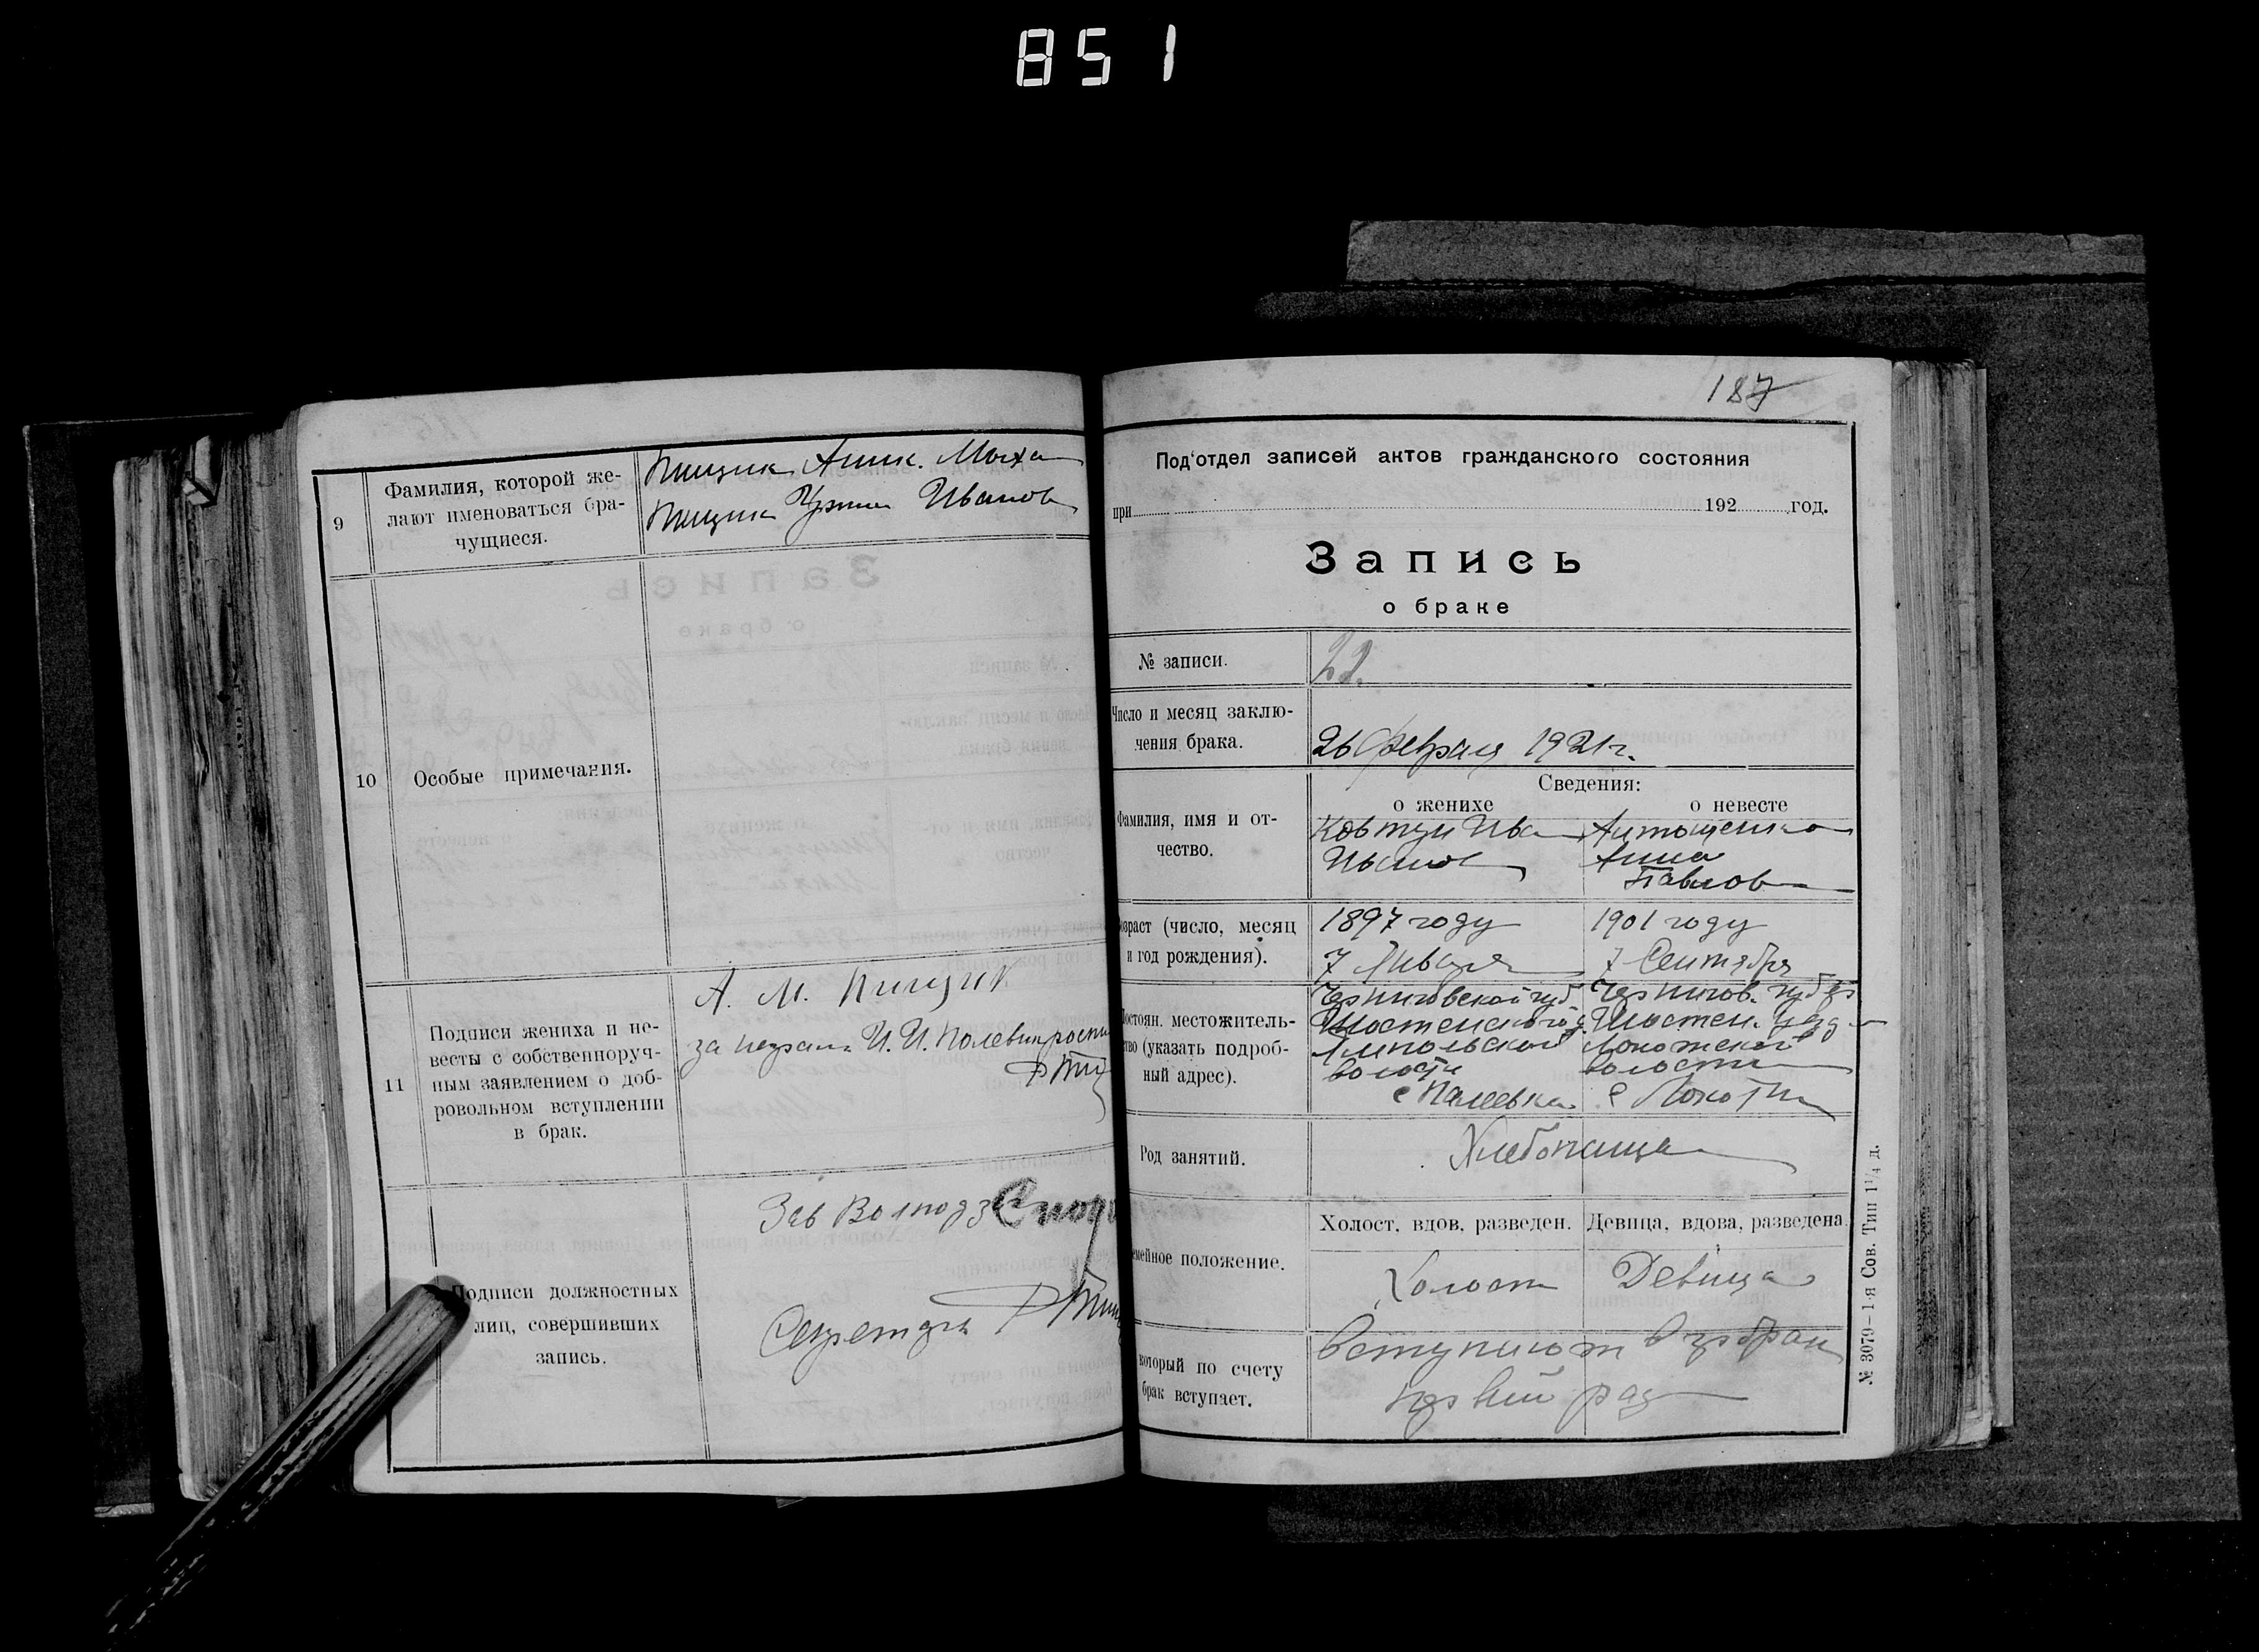 851
9
Фамилия, которой же-
лают именоваться бра-
чущиеся.
Пищик Аник. Миха
Пищик Иванов
10
Особые примечания.
11
Подписи жениха и не-
весты с собственноруч-
ным заявлением о доб-
ровольном вступлении
в брак.
А. М. Пищик
за неграм. И. И. Полевик роспи
Подписи должностных
лиц, совершивших
запись.
Зав
Секретарь
187
Под‘отдел записей актов гражданского состояния
при 192 год.
Запись
о браке
№ записи.
22.
Число и месяц заклю-
чения брака.
26 февраля 1921 г.
Сведения:
о женихе
о невесте
Фамилия, имя и от-
чество.
Ковтун Ива
Иванов
Антошенко
Анна
Павлов
озраст (число, месяц
и год рождения).
1897 году
7 Января
1901 году
7 Сентября
остоян. местожитель-
тво (указать подроб-
ный адрес).
Черниговской губ.
Шостенского у.
Ямпольской
волости
с Палеевка
Чернигов. губер
Шостен. уезд
Локотской
волости
с Локотки
Род занятий.
Хлебопащца
емейное положение.
Холост, вдов, разведен.
Девица, вдова, разведена.
Холост
Девица
который по счету
брак вступает.
Вступают в брак
первий раз
№ 3079–1-я Сов. Тип 1¼ д.